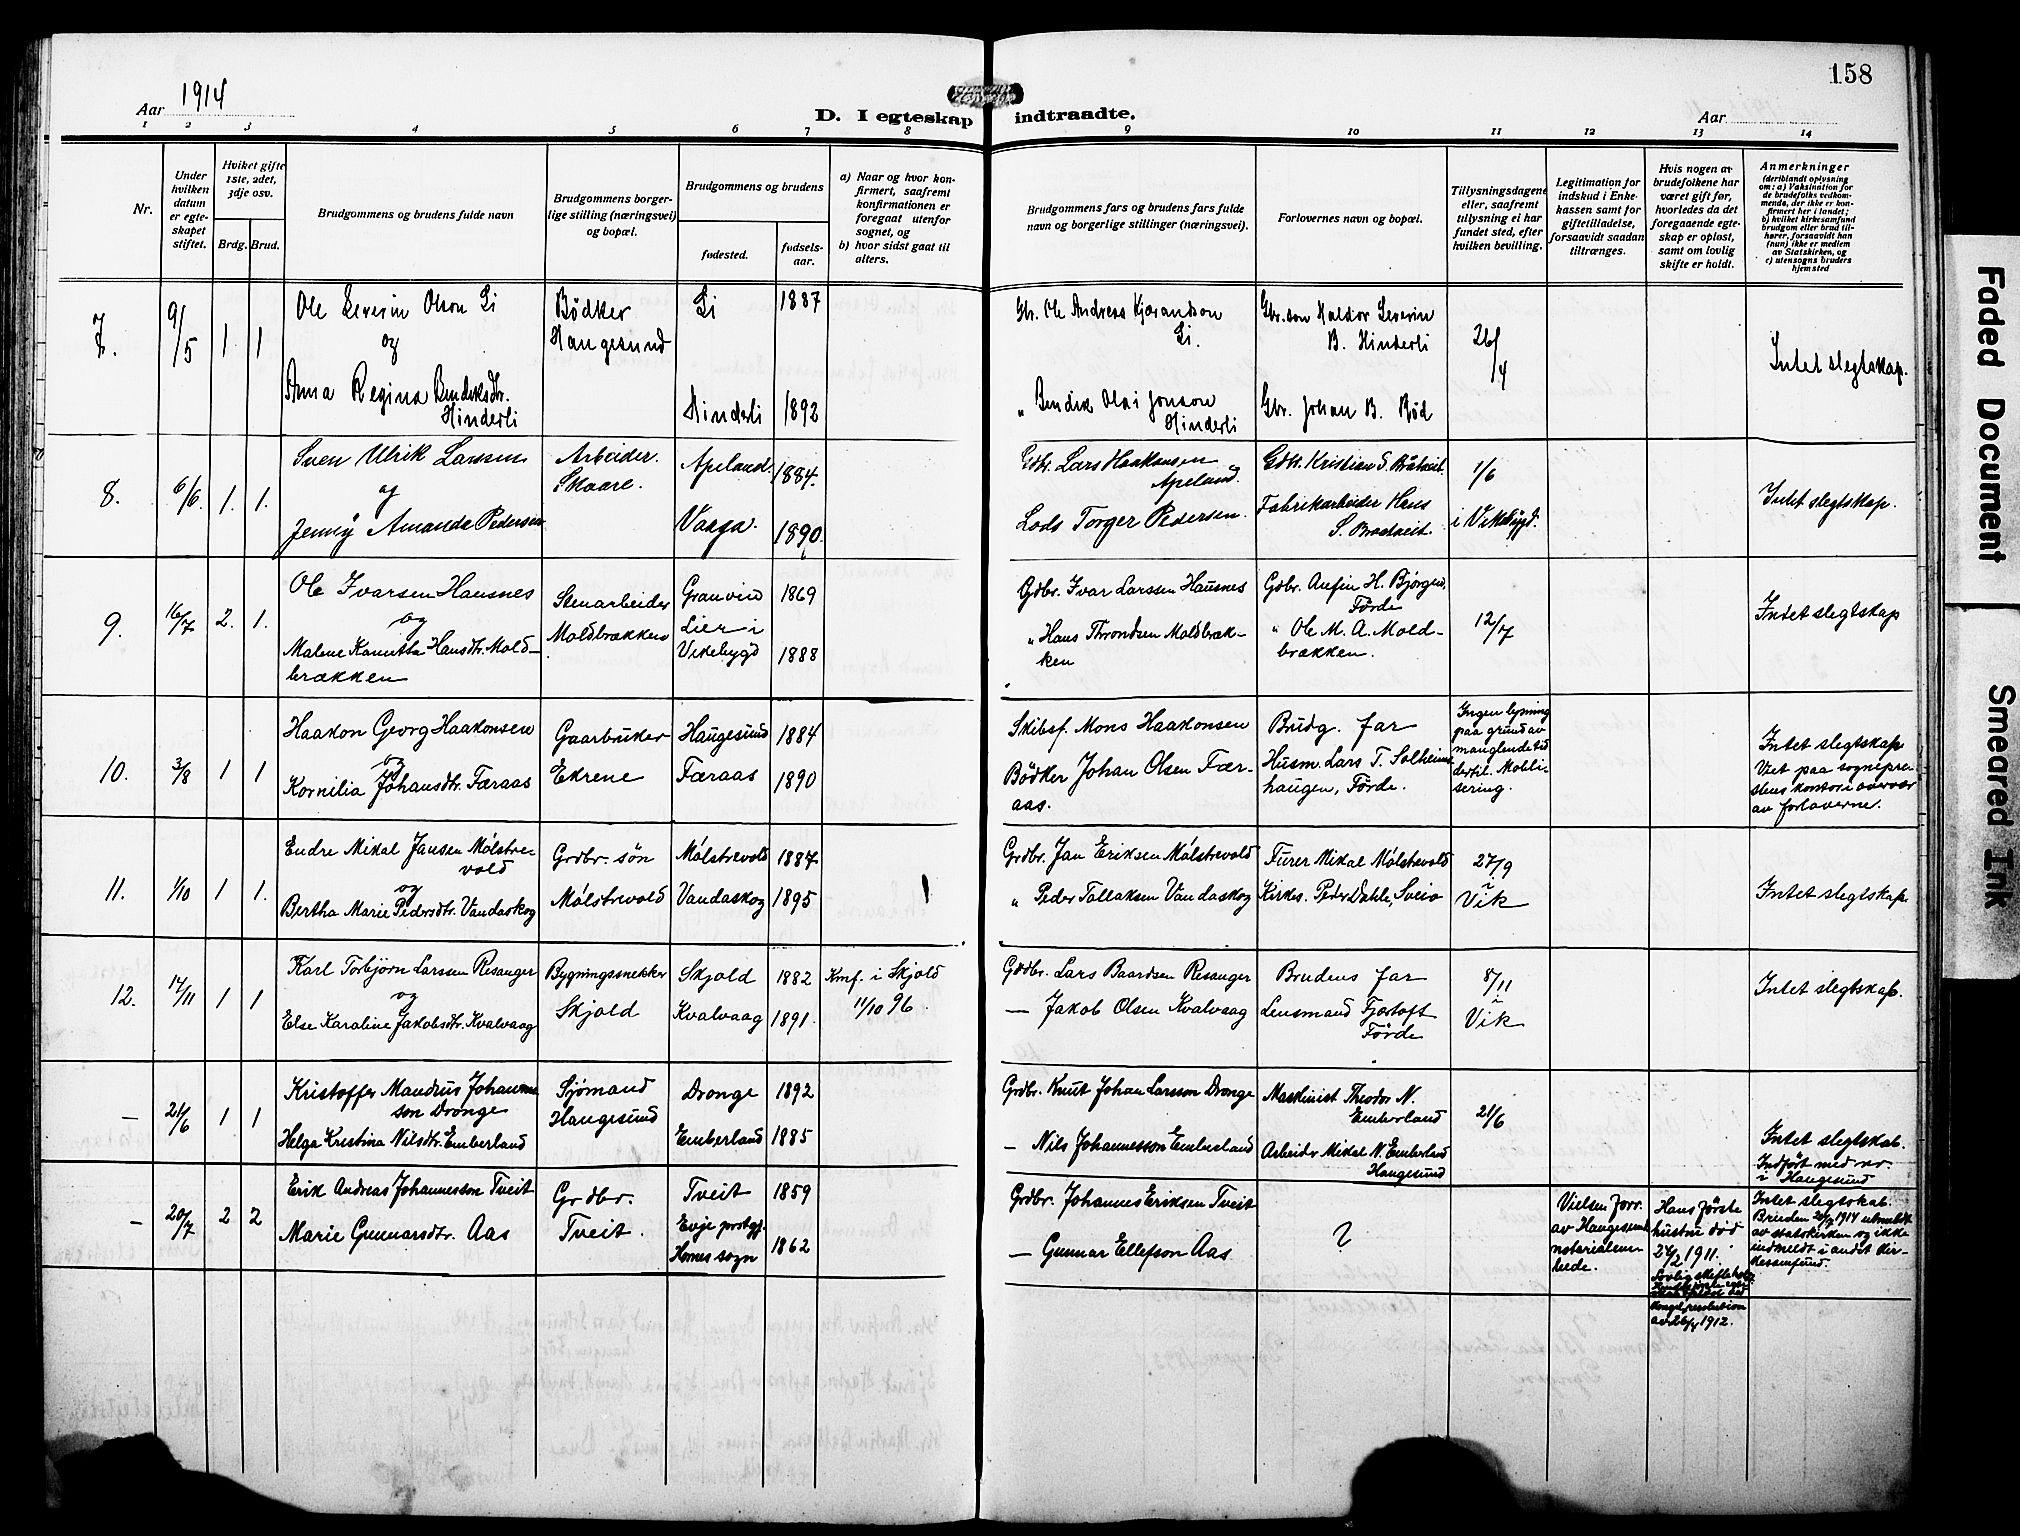 158
Aar 1914
D. I egteskap indtraadte.
Aar
1 2 3 4 5 6 7 8 9 10 11 12 13 14
Nr.
Under hvilken datum er egteskapet stiftet.
Hvilket gifte 1ste, 2det, 3dje osv.
Brdg. Brud.
Brudgommens og brudens fulde navn
Brudgommens borgerlige stilling (næringsvei) og bopæl.
Brudgommens og brudens
fødested.
fødselsaar.
a) Naar og hvor konfirmert, saafremt konfirmationen er foregaat utenfor sognet, og
b) hvor sidst gaat til alters.
Brudgommens fars og brudens fars fulde navn og borgerlige stillinger (næringsvei).
Forlovernes navn og bopæl.
Tillysningsdagene eller, saafremt tillysning ei har fundet sted, efter hvilken bevilling.
Legitimation for indskud i Enkekassen samt for giftetilladelse, forsaavidt saadan tiltrænges.
Hvis nogen av brudefolkene har været gift før, hvorledes da det foregaaende egteskap er opløst, samt om lovlig skifte er holdt.
Anmerkninger
(deriblandt oplysning om: a) Vaksination for de brudefolks vedkommende, der ikke er konfirmert her i landet; b) hvilket kirkesamfund brudgom eller brud tilhører, forsaavidt han (hun) ikke er medlem av Statskirken, og c) utensogns bruders hjemsted
7. 9/5 1 1
Ole Severin Olson Li
og
Anna Regina Bendiksdtr.
Hinderli
Bödker
Haugesund
Li 1887
Hinderli 1892
Gbr. Ole Andreas Kjærandson
Li.
" Bendik Olai Jonson
Hinderli
Gbr. søn Haldor Severin
B. Hinderli
Gbr. Johan B. Bød
26/4
Intet slegtskap.
8. 6/6. 1. 1.
Sven Ulrik Larssen
og
Jenny Amanda Pedersen
Arbeider.
Skaare.
Apeland 1884.
Vaaga. 1890.
Gdbr. Lars Haakonsen
Apeland.
Lods Torger Pedersen.
Gdbr. Kristian S. Bratveit.
Fabrikarbeider Hans
S. Bratveit.
1/6
i Vikebygd.
Intet slegtskap.
9. 16/7 2. 1.
Ole Ivarsen Hausnes
og
Malene Kanutta Hansdtr. Mold-
brækken
Stenarbeider
Moldbrækken
Granvin 1869
Lier i
Vikebygd 1888
Gdbr. Ivar Larssen Hausnes
" Hans Throndsen Moldbræk-
ken
Gdbr. Anfin H. Bjørgen,
Förde
" Ole M. A. Mold-
brækken.
12/7
Intet slegtskap
10. 3/8 1 1
Haakon Georg Haakonsen
og
Kornilia Johansdtr. Færaas
Gaarbruker
Ekrene
Haugesund 1884
Færaas 1890
Skibsf. Mons Haakonsen
Bödker Johan Olsen Fær-
aas.
Brudg. far
Husm. Lars T. Solheims-
haugen, Förde.
Ingen lysning
paa grund av
manglende tid
dertil. Mobili-
sering.
Intet slegtskap
Viet paa sognepre-
stens kontor i overvær
av forloverne.
11. 1/10 1 1.
Endre Mikal Jansen Mølstre-
vold
og
Bertha Marie Pedersdtr. Vandaskog
Grdbr. søn
Mølstrevold
Mølstrevold 1887
Vandaskog 1895
Grdbr. Jan Eriksen Mølstrevold
" Peder Tollaksen Vandaskog
Furer Mikal Mølstrevold
Kirkes. Peder Dahle, Sveio
27/9
i
Vik
Intet slegtskap.
12. 17/11 1 1
Karl Torbjörn Larssen Resanger
og
Else Karoline Jakobsdtr. Kvalvaag
Bygningssnekker
Skjold
Skjold 1882
Kvalvaag 1891.
Kmf. i Skjold
11/10 96.
Gdbr. Lars Baardsen Resanger
— Jakob Olsen Kvalvaag
Brudens far
Lensmand Fjærtoft
Förde
8/11
i
Vik
Intet slegtskap.
— 21/6 1 1
Kristoffer Mandrus Johannes-
son Dronge
Helga Kristina Nilsdtr. Emberland
Sjømand
Haugesund
Dronge 1892
Emberland 1885
Grdbr. Knut Johan Larsson Dronge
— Nils Johannesson Emberland
Maskinist Theodor N.
Emberland
Arbeider Mikal N. Emberland
Haugesund
21/6
Intet slegtskab.
Indført med nr.
i Haugesund
— 20/7 2 2
Erik Andreas Johannesson Tveit
Marie Gunnarsdtr. Aas
Grdbr.
Tveit.
Tveit 1859
Evje prestgj.
Hornes sogn 1862
Grdbr. Johannes Eriksen Tveit
— Gunnar Ellefson Aas.
?
Vielsen forr.
av Haugesund
notarialem-
bede.
Hans første
hustru död
24/2 1911.
Lovlig skifte holdt
Kongel. resolution
1912.
Intet slegtskab.
Bruden 20/7 1914 utmeldt
av statskirken og ikke
indmeldt i andet kir-
kesamfund.
Faded Document
Smeared Ink